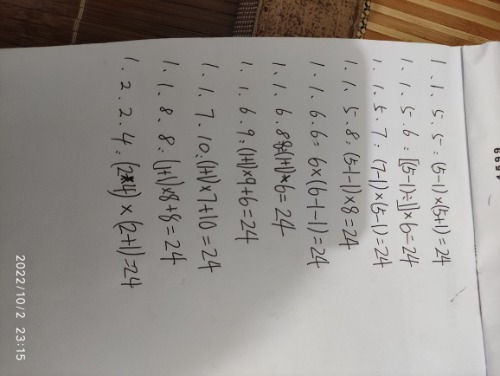 1. 1. 5. 5: (5-1)×(5+1)=24
1. 1. 5. 6: [(5-1)÷1]×6=24
1. 1. 5. 7: (7-1)×(5-1)=24
1. 1. 5. 8: (5-1-1)×8=24
1. 1. 6. 6: 6×(6-1-1)=24
1. 1. 6. 8: (1+1)×6=24
1. 1. 6. 9: (1+1)×9+6=24
1. 1. 7. 10: (1+1)×7+10=24
1. 1. 8. 8: (1+1)×8+8=24
1. 2. 2. 4: (2×4)×(2+1)=24
2022/10/2 23:15